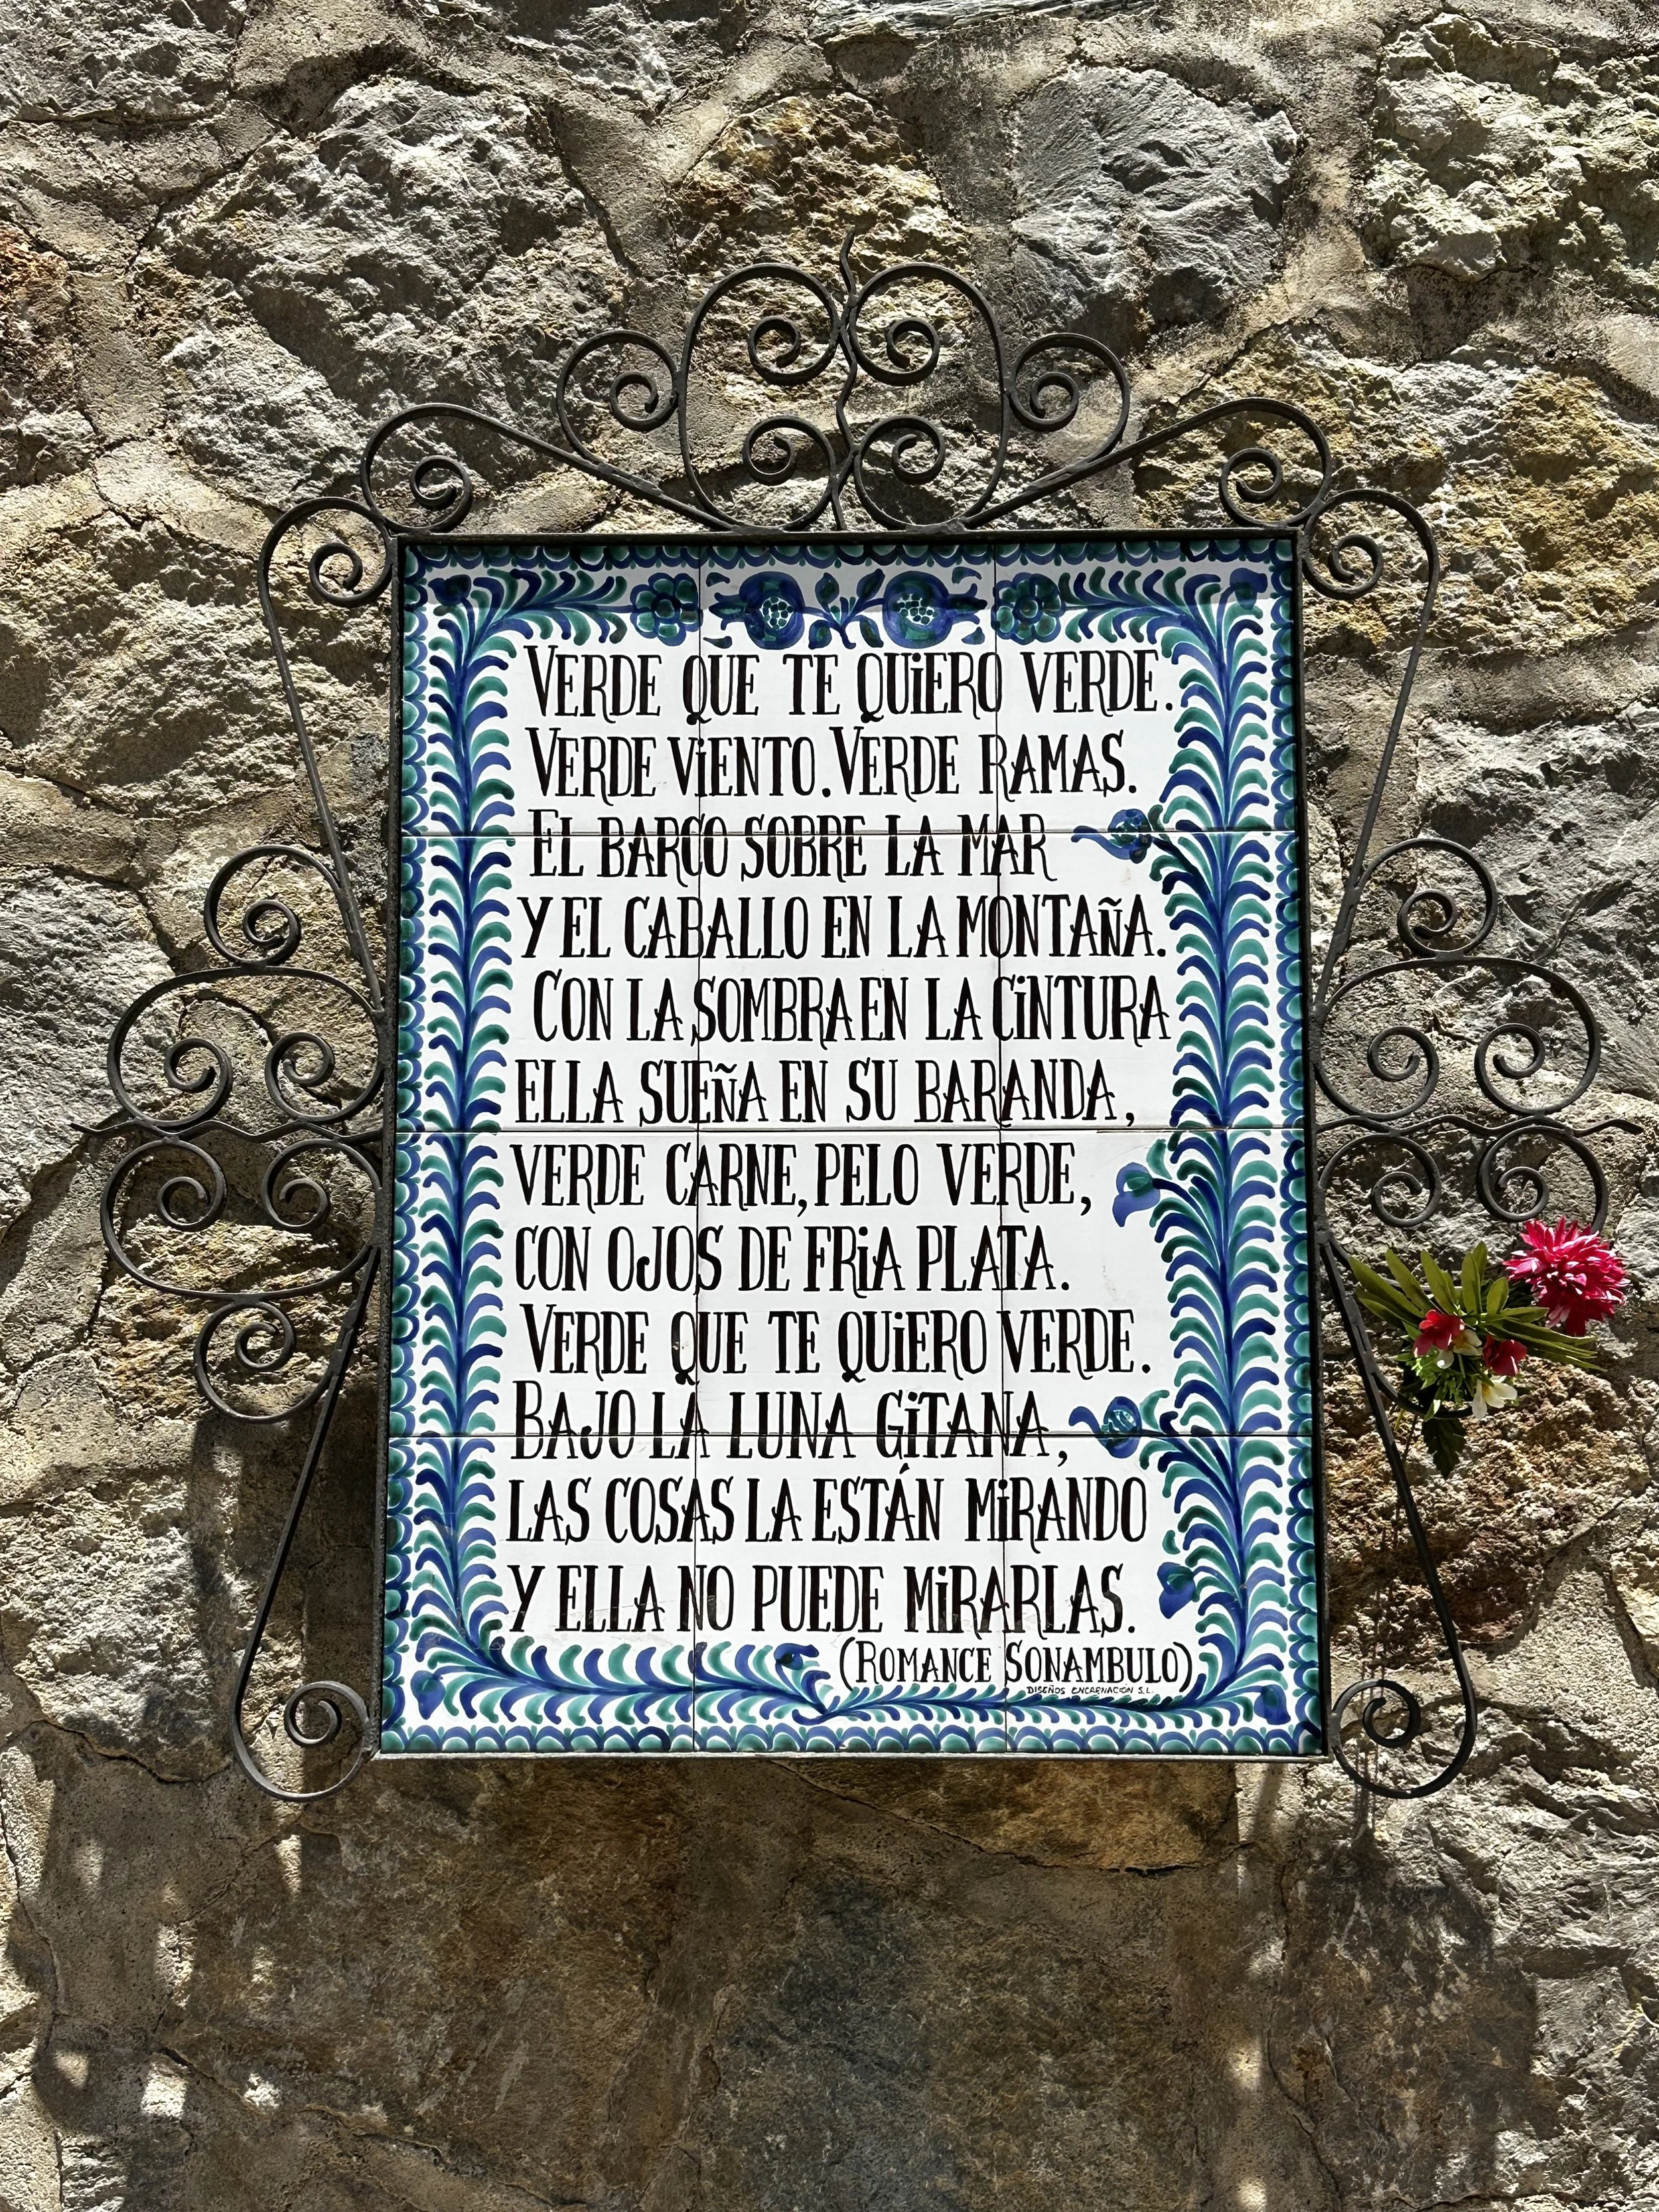 VERDE QUE TE QUiERO VERDE.
VERDE ViENTO. VERDE RAMAS.
EL BARCO SOBRE LA MAR
Y EL CABALLO EN LA MONTAÑA.
CON LA SOMBRA EN LA CiNTURA
ELLA SUEÑA EN SU BARANDA,
VERDE CARNE, PELO VERDE,
CON OJOS DE FRiA PLATA.
VERDE QUE TE QUiERO VERDE.
BAJO LA LUNA GiTANA,
LAS COSAS LA ESTÁN MiRANDO
Y ELLA NO PUEDE MiRARLAS.
(ROMANCE SONAMBULO)
DISEÑOS ENCARNACIÓN S.L.